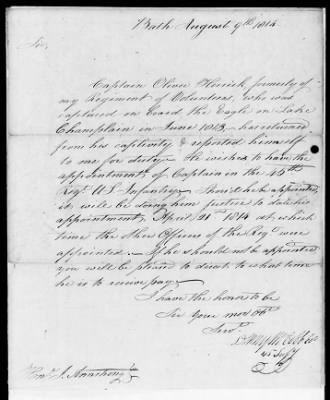 Bath August 9th 1814
Sir,
Captain Oliver Herrick formerly of
my Regiment of Volunteers, who was
captured on board the Eagle on Lake
Champlain in June 1813 - has returned
from his captivity & reported himself
to me for duty. He wishes to have the
appointment of Captain in the 45th
Regt U.S. Infantry. Should he be appointed
it will be doing him justice to date his
appointment, April 21st 1814 at which
time the other Officers of the Regt were
appointed. If he should not be appointed
you will be pleased to direct to what time
he is to receive pay.
I have the honor to be
Sir Your mos Obt
Servt
45 Infy
Honl J. Armstrong